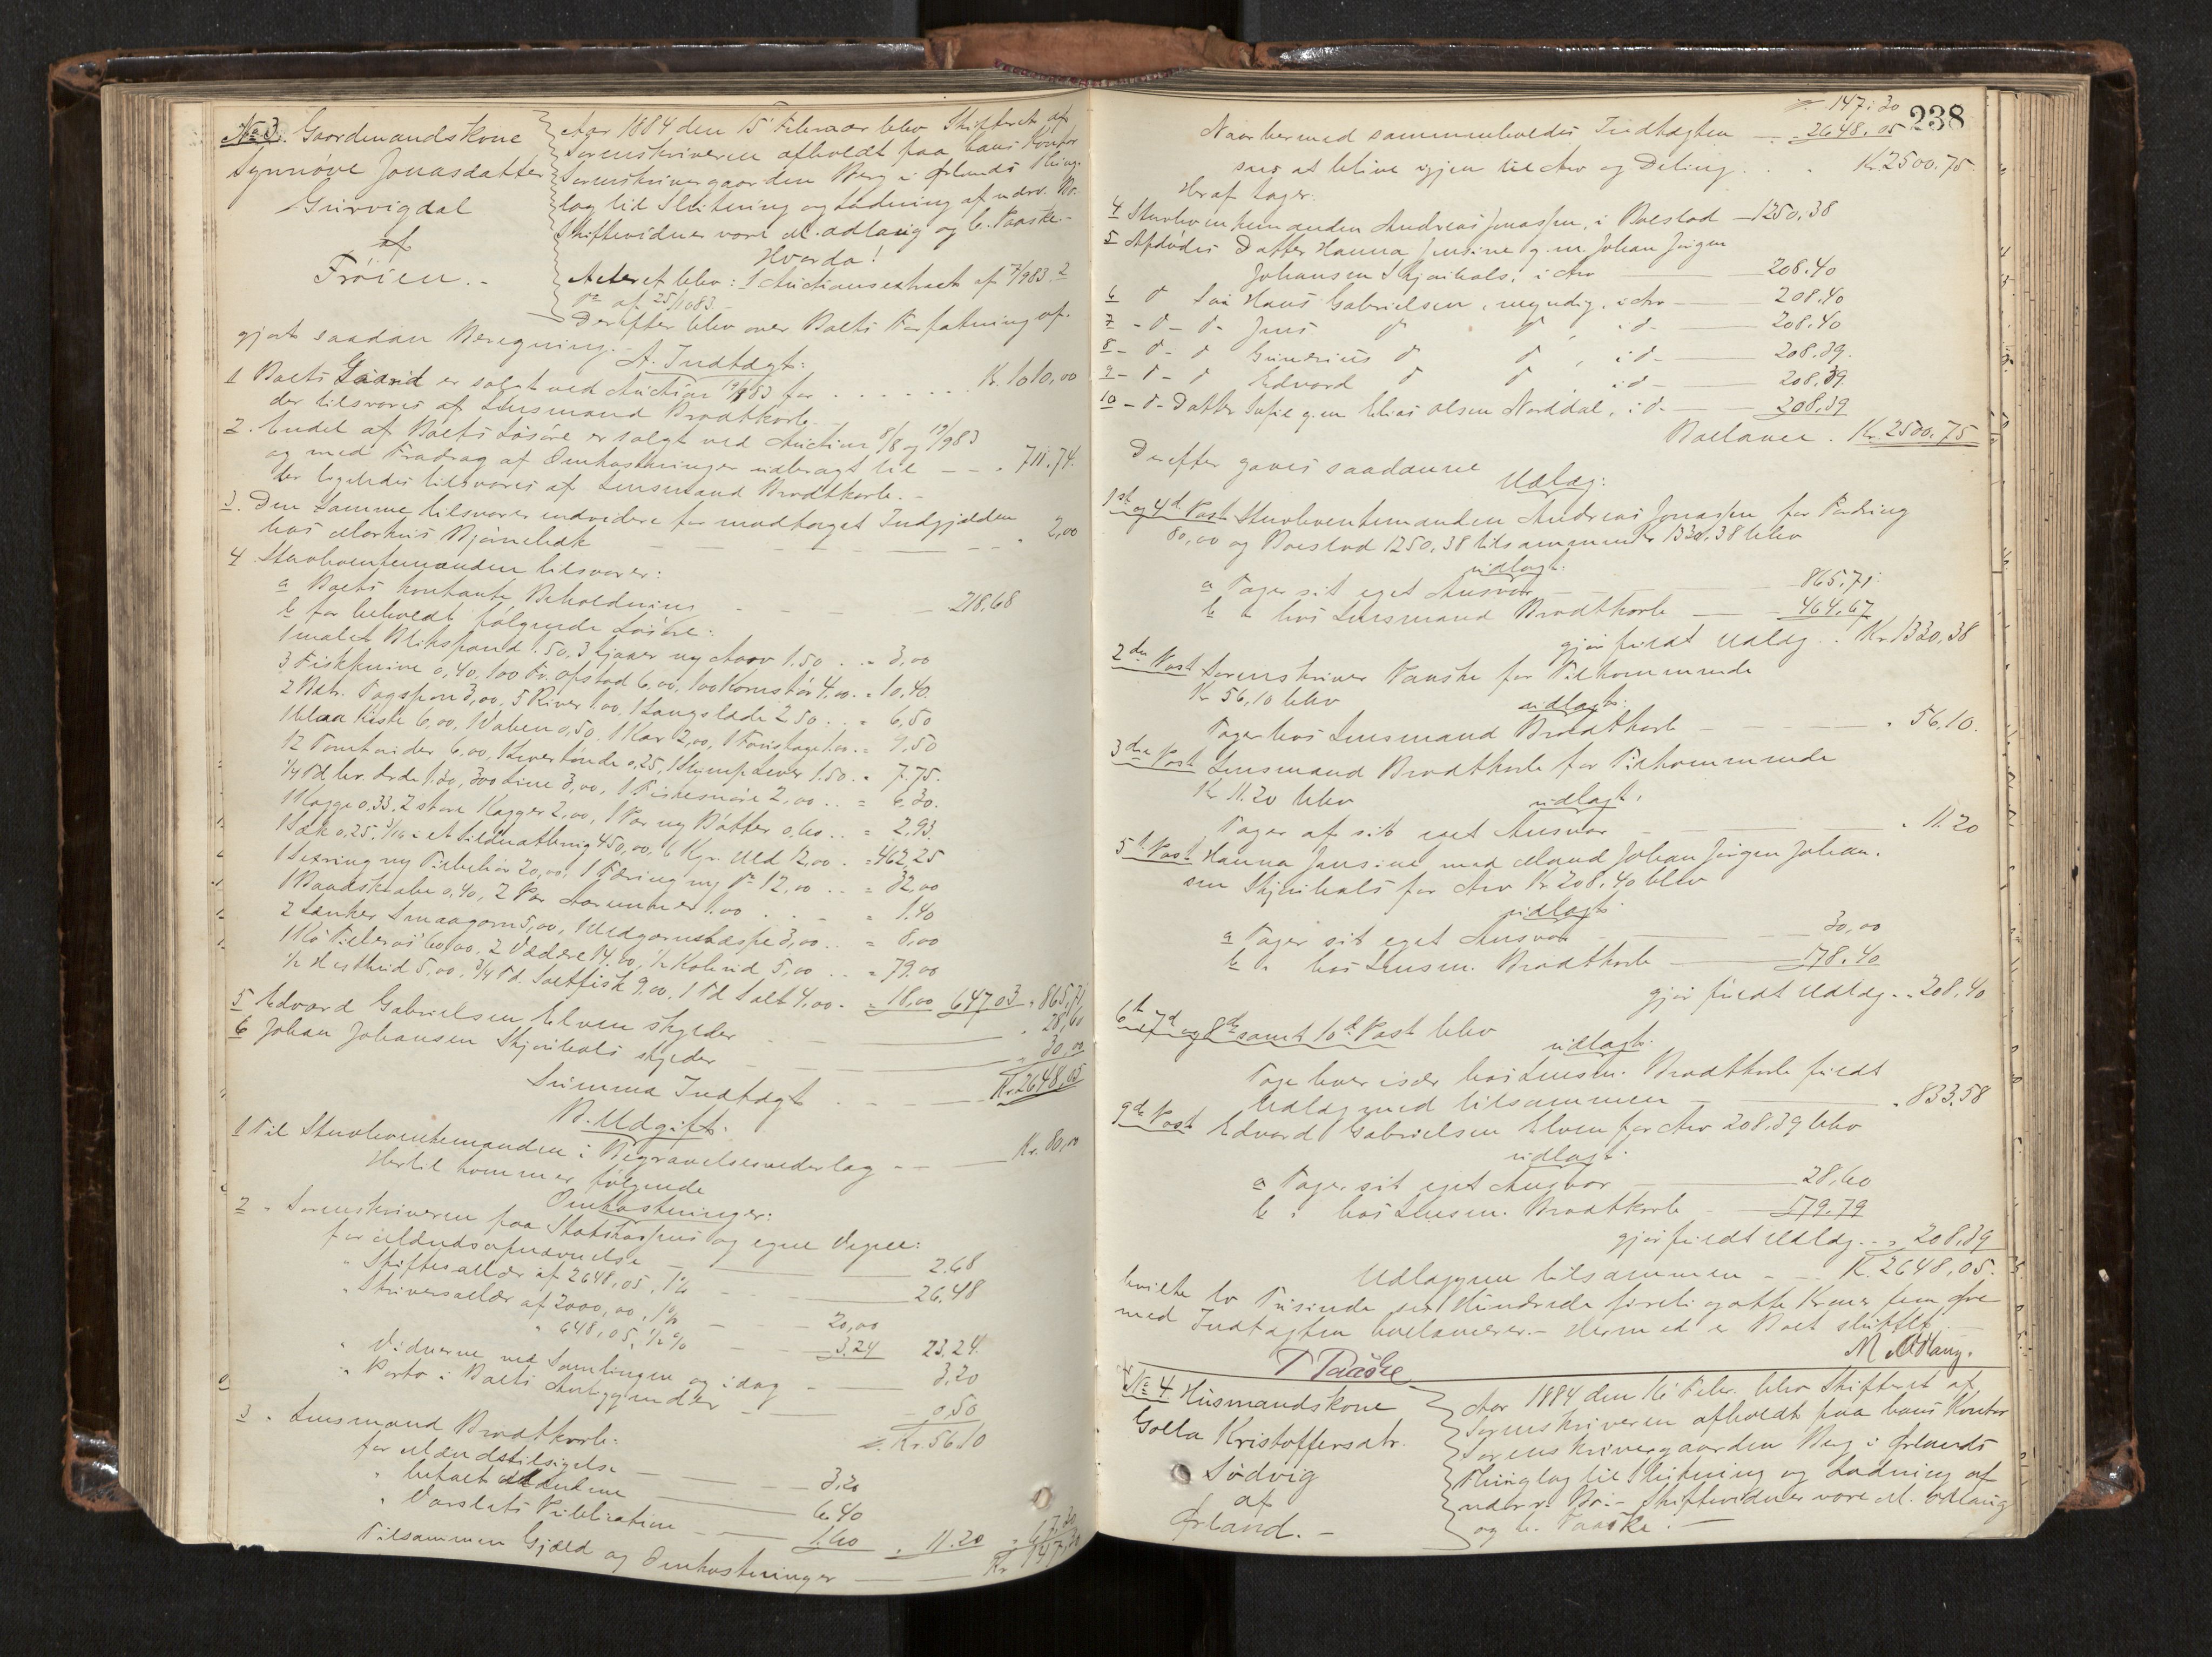 No 3. Gaardmandskone
Synnøve Jonasdatter
Gurvigdal
af
Frøien.-
Aar 1884 den 15 Februar blev Skifteret af
Sorenskriveren afholdt paa hans Kontor
Sorenskrivergaarden Berg i Ørlands Thing-
lag til Slutning og Ladning af nærv. Bo.
Skiftevidner vare M. Ødlaug og C. Paaske.-
Hvorda!
Acteret blev: 1 Auctionsextract af 7/9 83. 2
do af 25/10 83.-
Derefter blev over Boets Forfatning op-
gjort saadan Beregning.-
A. Indtægt:
1 Boets Gaard er solgt ved Auction 19/9 83 for . . . . . . Kr. 1010,00
der tilsvares af Lensmand Brodtkorb.
2. Endel af Boets Løsøre er solgt ved Auction 8/8 og 19/9 83
og med Fradrag af Omkostninger udbragt til - - " 711.74.
der ligeledes tilsvares af Lensmand Brodtkorb.-
3. Den Samme tilsvarer endvidere for modtaget Indgjælden
hos Markus Bjørnebæk - - - " 2,00
4 Stervboenkemanden tilsvarer:
a Boets kontante Beholdning - - - 218,68
b for beholdt følgende Løsøre:
1 malet Blikspand 1.50, 3 Ljaaer og Aaov 1.50 . . " 3,00
3 Fiskknive 0,40, 100 Fv. opstad 6,00, 100 Kornstør 4.00. " 10,40.
2 Bdt. Tagspon 3,00, 5 River 1.00, 1 Langslæde 2 50 . . " 6,50
1 blaa Kiste 6,00, 1 Vaben 0,50, 1 Kar 2,00, 1 . " 9,50
12 6,00, 1 Levertønde 0,25, 1 Lever 1.50. " 7.75.
1/4 Td. 1.30, 300 Line 3,00, 1 Fiskesnøre 2,00 . . " 6,30.
1 Kagge 0,33, 2 store Kagger 2,00, 1 Par ny Bøtter 0,60 . . " 2,93.
1 Sæk 0,25, 3/16 i et Sildnotbrug 450,00, 6 Kgr. Uld 12,00 . " 462,25
1 Sexring ny Tilbehør 20,00, 1 Færing ny do 12,00 . . " 32,00
1 Baadskrabe 0,40, 2 Par 1.00 . . " 1.40
2 Lænker Smaagarn 5,00, 1 Uldgarnshaspe 3,00 . . " 8,00
1 Ko Fileros 60,00, 2 Vædere 14.00, 1/2 Kohud 5,00 . . " 79,00
1/2 Hesthud 5,00, 3/4 Td. Saltfisk 9,00, 1 Td Salt 4,00. " 18,00 647,03 " 865,71
5 Edvard Gabrielsen Elven skylder - " 28,60
6 Johan Johansen Skjærhals skylder - " 30,00
Summa Indtægt - - - Kr. 2648,05
B. Udgift.
1 Til Stervboenkemanden i Begravelsesvederlag - - Kr. 80,00
Hertil kommer følgende
Omkostninger:
2 " Sorenskriveren paa Statskassens og egne Vegne:
for Mændsopnævnelse - 2.68
" Skiftesallær af 2648,05, 1% - 26,48
" Skriversallær af 2000,00, 1% - 20,00
" 648,05, 1/2% - 3.24 23,24.
" Vidnerne ved Samlingen og idag - 3,20
" Porto i Boets Anliggender - 0,50
Kr. 56.10
3 " Lensmand Brodtkorb:
for Mændstilsigelse - 3.20
" betalt Mændene - 6.40
" Varslets Publication - 1.60 " 11.20 " 67.30
Tilsammen Gjæld og Omkostninger - Kr. 147,30
Kr. 147.30
238
Naar hermed sammenholdes Indtægten - - " 2648.05
sees at blive igjen til Arv og Deling . " Kr. 2500.75
Heraf tager:
4 Stervboenkemanden Andreas Jonassen, i Boeslod - 1250,38
5 Afdødes Datter Hanna Jensine g.m. Johan Jørgen
Johansen Skjærhals, i Arv - 208.40
6 do Søn Hans Gabrielsen, myndig, i Arv - 208.40
7 - do - do - Jens do do i do - 208.40
8 - do - do Gunerius do do, i do - 208,39.
9 - do - do Edvard do do, i do - 208,39.
10 - do - Datter Sofie g.m. Elias Olsen Norddal, i do - 208,39
Balance . Kr. 2500.75
Derefter gaves saadanne
Udlæg:
1ste og 4de Post Stervboenkemanden Andreas Jonassen for Fordring
80,00 og Boeslod 1250,38 tilsammen 1330,38 blev
udlagt:
a Tager sit eget Ansvar - 865,71
b " hos Lensmand Brodtkorb - 464.67
gjør fuldt Udlæg . . Kr. 1330,38
2den Post Sorenskriver Paaske for Tilkommende
Kr 56,10 blev
udlagt:
Tager hos Lensmand Brodtkorb - " 56,10.
3die Post Lensmand Brodtkorb for Tilkommende
Kr 11.20 blev
udlagt:
Tager af sit eget Ansvar - " 11.20
5te Post Hanna Jensine med Mand Johan Jørgen Johan-
sen Skjærhals for Arv Kr 208.40 blev
udlagt:
a Tager sit eget Ansvar - 30,00
b " hos Lensm. Brodtkorb - 178.40
gjør fuldt Udlæg - " 208,40
6te 7de og 8de samt 10de Post blev
udlagt:
Tage hver især hos Lensm. Brodtkorb fuldt
Udlæg med tilsammen - " 833.58
9de Post Edvard Gabrielsen Elven for Arv 208.39 blev
udlagt:
a Tager sit eget Ansvar - 28,60
b " hos Lensm. Brodtkorb - 179.79
gjør fuldt Udlæg - " 208,39
Udlæggene tilsammen - Kr. 2648,05.
hvilke to Tusinde sex Hundrede firti og otte Kroner fem Øre
med Indtægten balancerer.- Hermed er Boet sluttet.-
T Paaske
M Ødlaug.
No 4. Husmandskone
Golla Kristoffersdtr.
Sødvig
af
Ørland.-
Aar 1884 den 16 Febr. blev Skifteret af
Sorenskriveren afholdt paa hans Kontor
Sorenskrivergaarden Berg i Ørlands
Thinglag til Slutning og Ladning af
nærv. Bo.- Skiftevidner vare M. Ødlaug
og C. Paaske.-